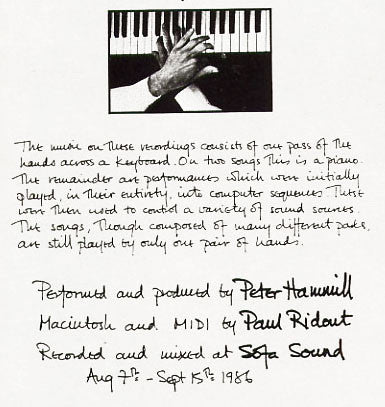 The music on these recordings consists of one pass of the
hands across a keyboard. On two songs this is a piano.
The remainder are performances which were initially
played, in their entirety, into computer sequences. These
were then used to control a variety of sound sources.
The songs, though composed of many different parts,
are still played by only one pair of hands.
Performed and produced by Peter Hammill
Macintosh and MIDI by Paul Ridout
Recorded and mixed at Sofa Sound
Aug 7th - Sept 15th 1986